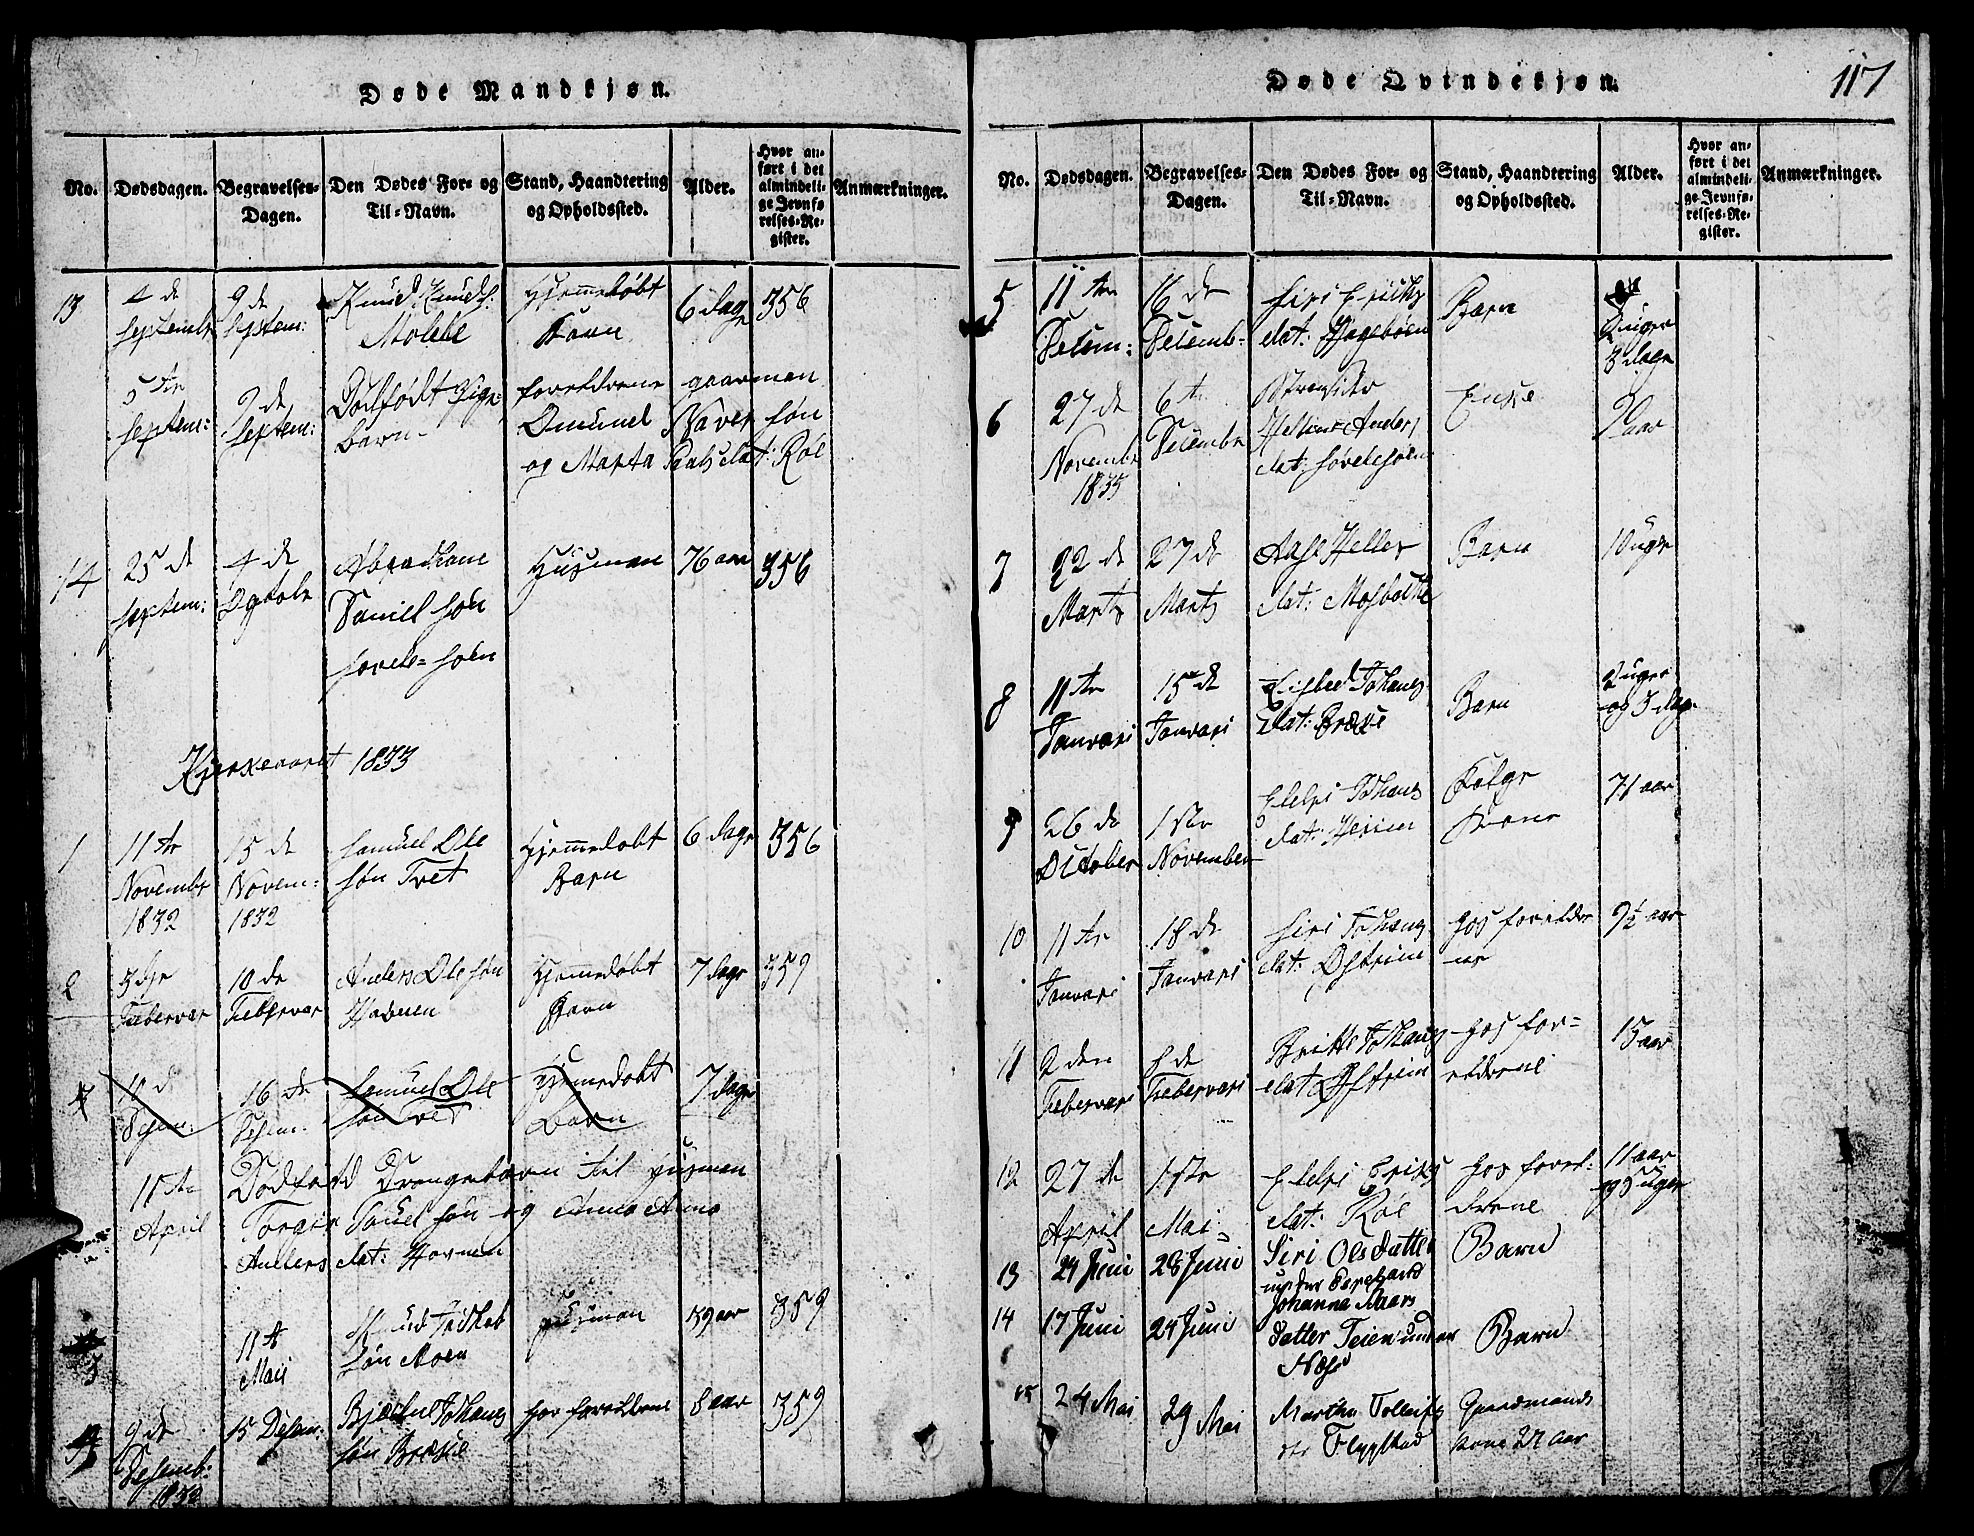 Døde Mandkjøn.
No.
Dødsdagen.
Begravelses-
Dagen.
Den Dødes For- og
Til-Navn.
Stand, Haandtering
og Opholdssted.
Alder.
Hvor an-
ført i det
almindeli-
ge Jevnfø-
relses-Re-
gister.
Anmærkninger.
13
4 de
septembr
9 de
septem:
Knud Knuds:
Molebe
Hjemedøbt
Barn
6 dage
356
5 te
septem:
9 de
septem:
Dødfødt Pige
barn
foreldrene gaarman
Omund Naver søn
og Marta Paals dat: Röe
14
25 de
septem:
4 de
Ogtobr
Abraham
Daniel søn
søvde-søen
Husman
76 aar
356
Kjerkeaaret 1833
1
11 te
November
1832
15 de
Novem:
1832
Samuel Ole
søn Tvet
Hjemedobt
Barn
6 dage
356
2
3 dje
Febervar
10 de
Febervar
Anders Ole søn
Havnen
Hjemedøbt
Barn
7 dage
359
10 de
Desem:
16 de
Desem.
Samuel Ole
søn Tvet
Hjemedobt
Barn
7 dage
11 te
April
Dødfød Drengebarn til Husman
Torgier Touel søn og Anna Anna
Anders dat: Havnen
5
11 te
Mai
Knud Jackob
søn Moen
Husman
39 aar
359
9 de
Desemb:
1832
15 Desem:
Johans
søn Brekke
hos foreldrene
8 aar
359
Døde Qvindekjøn.
117
No.
Dødsdagen.
Begravelses-
Dagen.
Den Dødes For- og
Til-Navn.
Stand, Haandtering
og Opholdssted.
Alder.
Hvor an-
ført i det
almindeli-
ge Jevnfø-
relses-Re-
gister.
Anmærkninger.
5
11 te
Desem:
16 de
Desemb-
Siri Erichs
dat: Hagebøen
Barn
2 uger
3 dage
6
27 de
Novembr
1835
6 te
Desembr
Anders
dat: søvdesøen
Enke
aar
7
22 de
Marts
27 de
Marts
Aase Heller
dat: Mosbotte
Barn
10 uge
8
11 te
Janvari
15 de
Janvari
Johans
dat: Brekke
Barn
2 uger
og 3 dage
9
26 de
October
1 ste
November
Eleli Johans
dat: Heiien
Folge
Kone
71 aar
10
11 te
Janvari
18 de
Janvari
Siri Johans
dat: Østrim
hos forelder
ne
9½ aar
11
2 den
Febervari
8 de
Febervari
Britte Johans
dat Østrim
hos for=
elderne
15 aar
12
27 de
April
1 ste
Mai
Eleli Eriks
dat: Röe
hos forel-
drene
11 aar
og 5 uger
13
24 Juni
28 Juni
Siri Olsdatter
under
Barn
14
17 Juni
24 Juni
Johanna Lars
datter Teien under
Næss
Barn
15
24 Mai
29 Mai
Martha Tolleifs
dtr Flygstad
Gaardmands
kone 27 aar